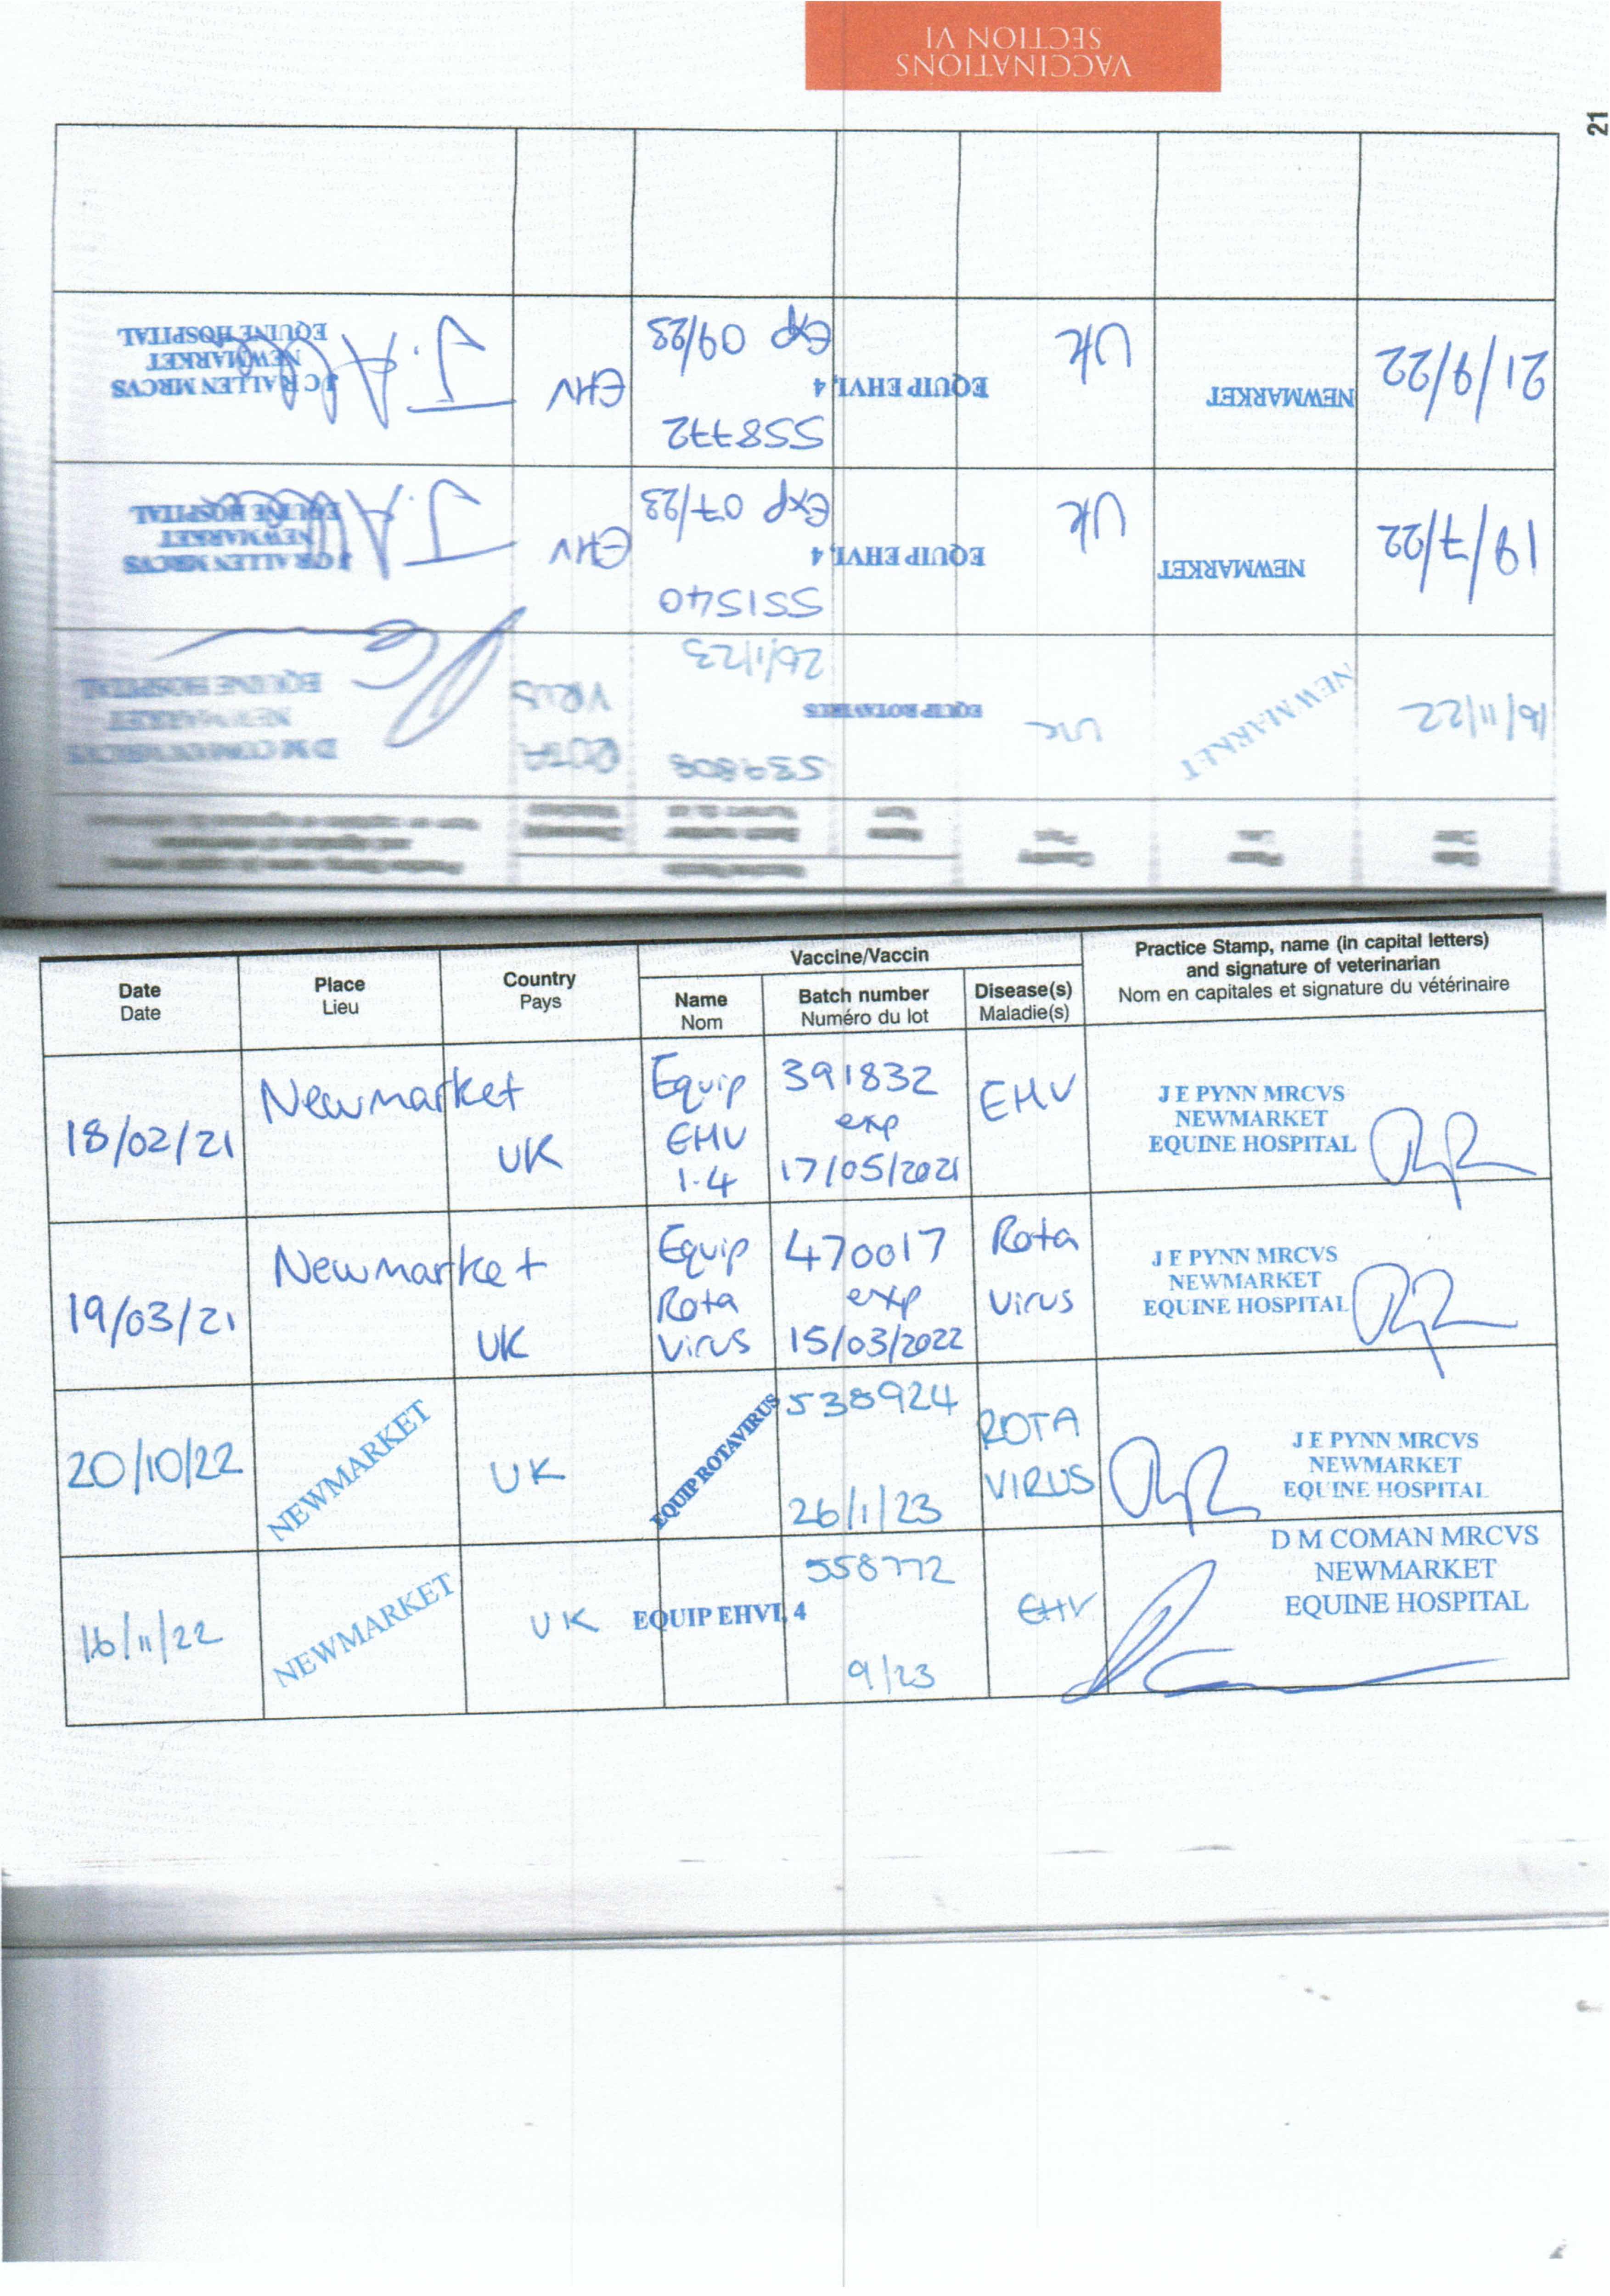 VACCINATIONS
SECTION VI
21
16/11/22
NEWMARKET
UK
EQUIP ROTAVIRUS
537808
26/1/23
ROTA
VIRUS
D M COMAN MRCVS
NEWMARKET
EQUINE HOSPITAL
19/7/22
NEWMARKET
UK
EQUIP EHV1, 4
551540
Exp 07/23
EHV
J C R ALLEN MRCVS
NEWMARKET
EQUINE HOSPITAL
J. All
21/9/22
NEWMARKET
UK
EQUIP EHV1, 4
558772
Exp 09/23
EHV
J C R ALLEN MRCVS
NEWMARKET
EQUINE HOSPITAL
Date
Date
Place
Lieu
Country
Pays
Vaccine/Vaccin
Name
Nom
Batch number
Numéro du lot
Disease(s)
Maladie(s)
Practice Stamp, name (in capital letters)
and signature of veterinarian
Nom en capitales et signature du vétérinaire
18/02/21
Newmarket
UK
Equip
EHV
1.4
391832
exp
17/05/2021
EHV
J E PYNN MRCVS
NEWMARKET
EQUINE HOSPITAL
19/03/21
Newmarket
UK
Equip
Rota
Virus
470017
exp
15/03/2022
Rota
Virus
J E PYNN MRCVS
NEWMARKET
EQUINE HOSPITAL
20/10/22
NEWMARKET
UK
EQUIP ROTAVIRUS
538924
26/1/23
ROTA
VIRUS
J E PYNN MRCVS
NEWMARKET
EQUINE HOSPITAL
16/11/22
NEWMARKET
UK
EQUIP EHV1, 4
558772
9/23
EHV
D M COMAN MRCVS
NEWMARKET
EQUINE HOSPITAL